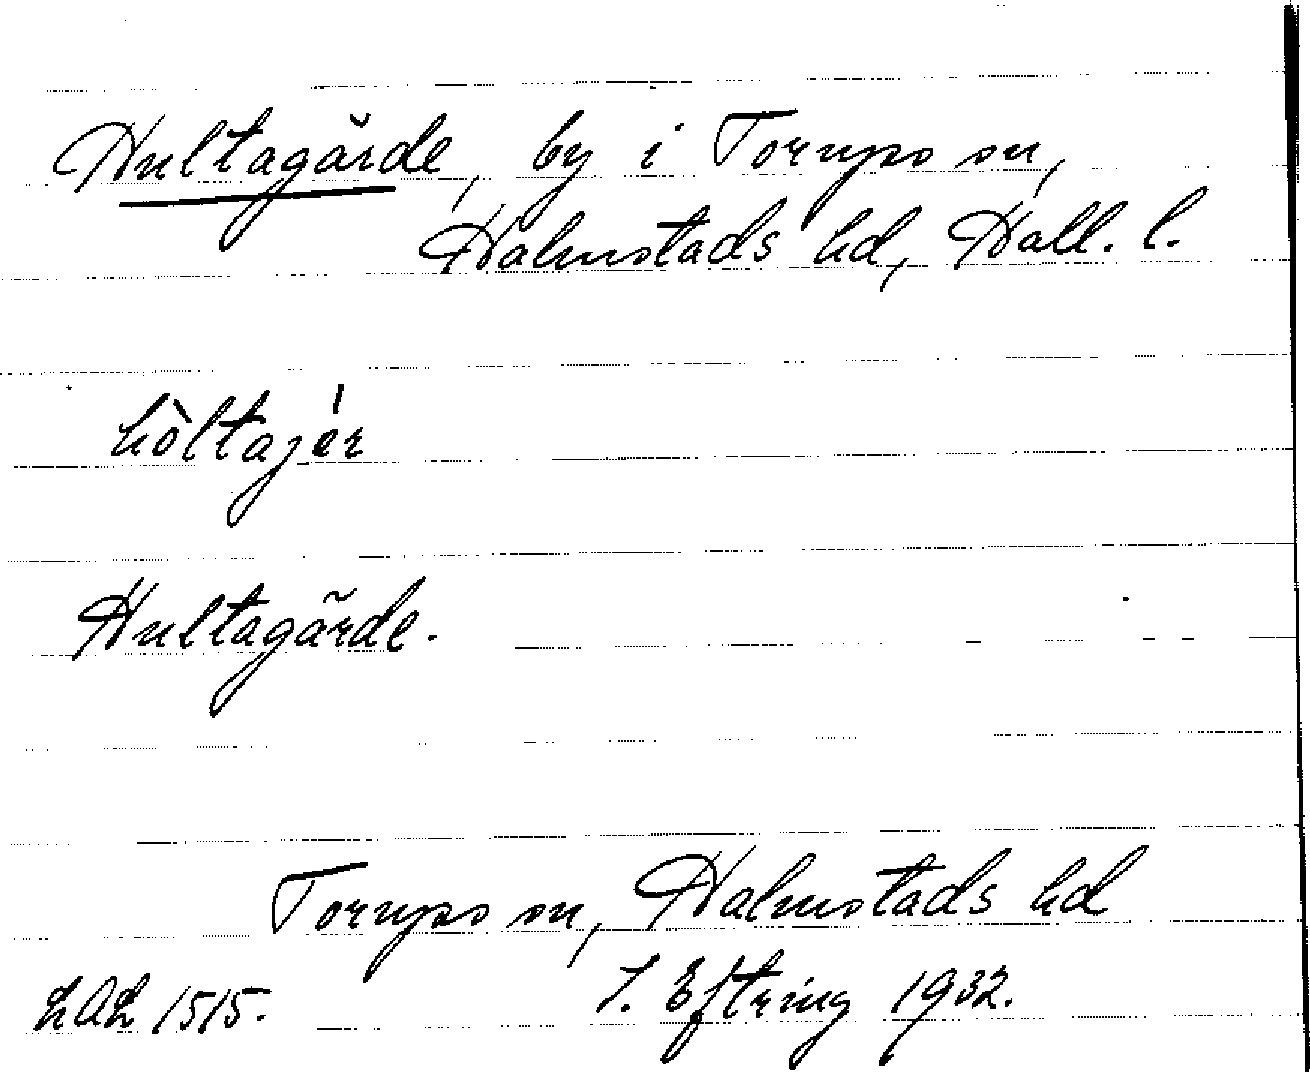 Hultagärde, by i Torups sn,
Halmstads hd, Hall. l.
hòltajér
Hultagärde.
Torups sn, Halmstads hd
LAL 1515. J. Eftring 1932.